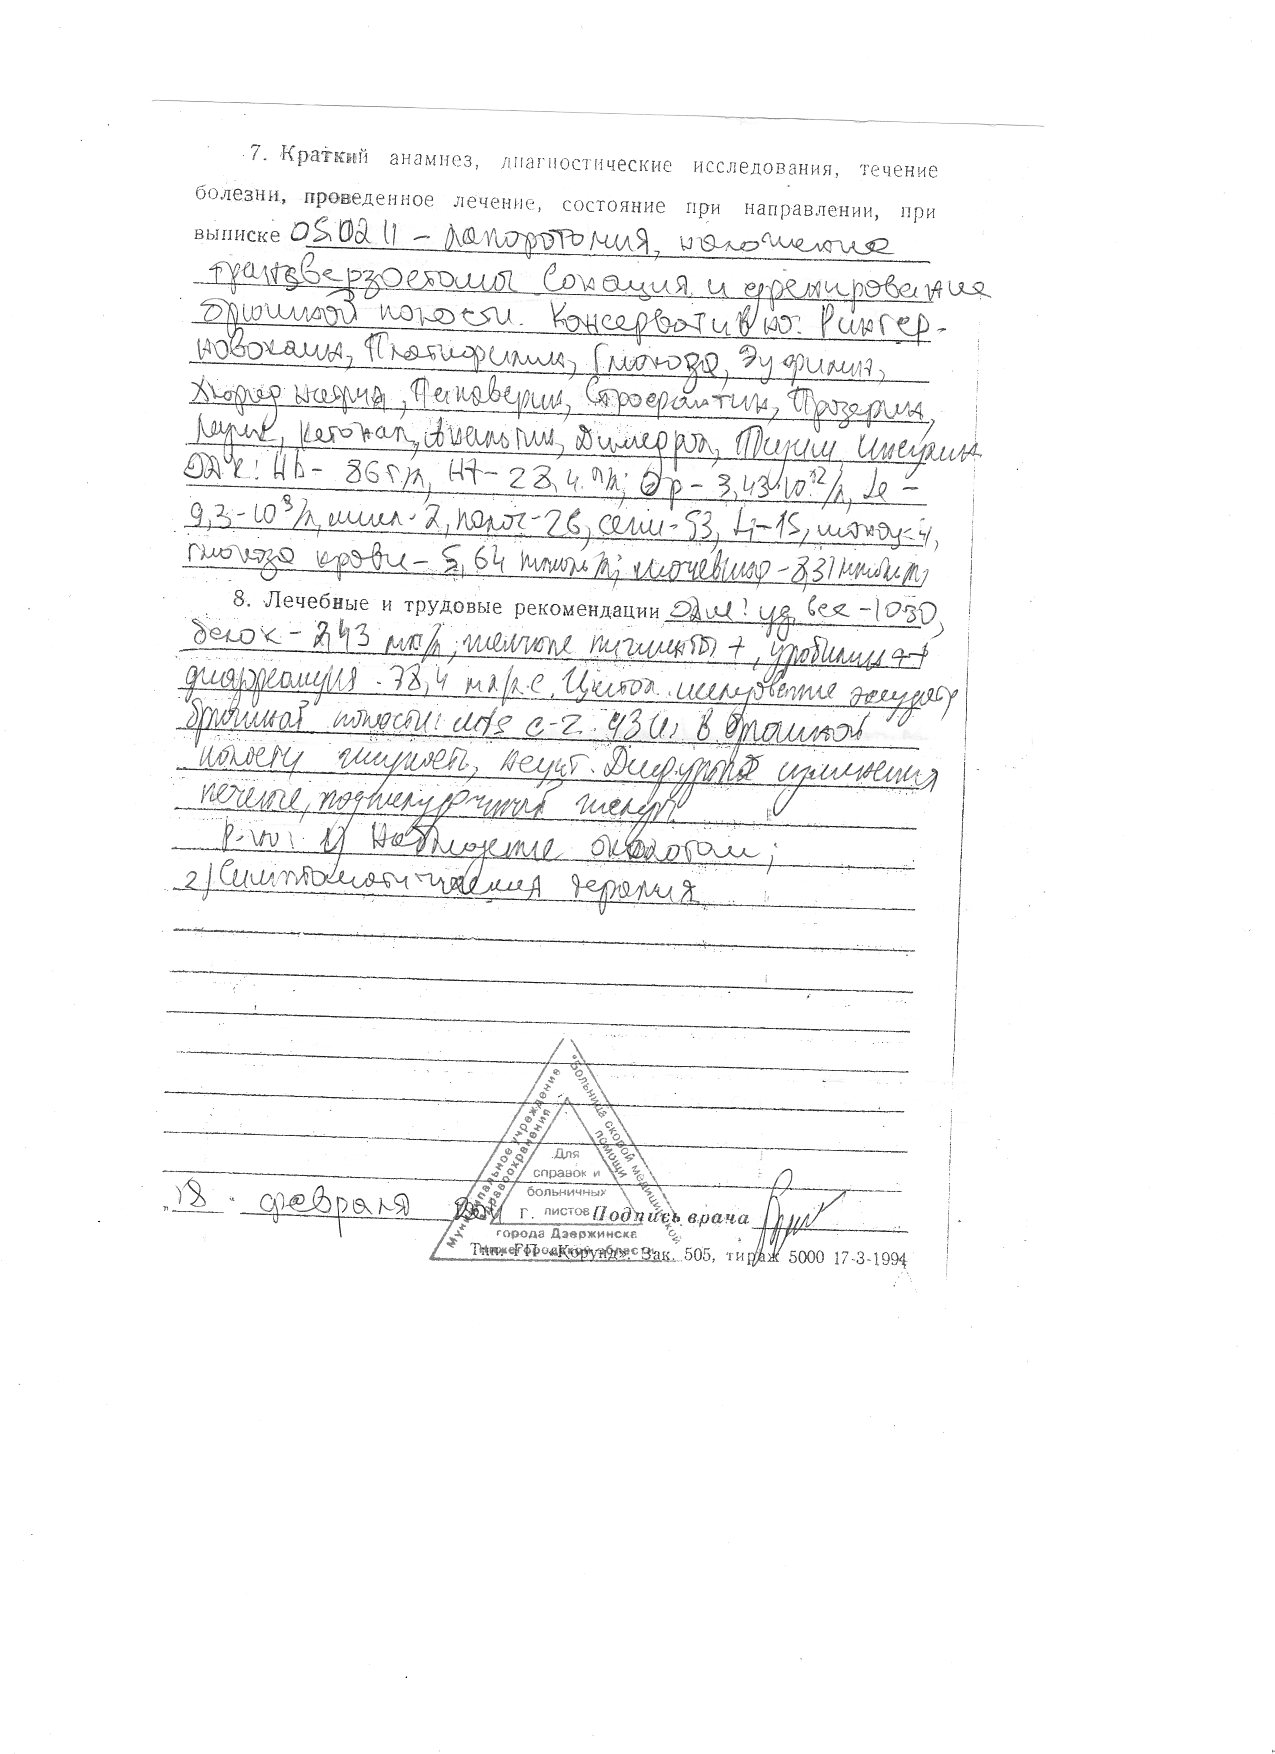 7. Краткий анамнез, диагностические исследования, течение
болезни, проведенное лечение, состояние при направлении, при
выписке 05.02 11 – лапоротомия, наложение
трансверзостомы Сонация и дренирование
брюшной полости. Консервативно: Рингер-
новокаин, Платифилин, Глюкоза, Эуфилин,
Хлорид натрия, Папаверин, Строфантин, Прозерин,
кетонал, Анальгин, Димедрол, инсулин
ОАК: Нb – 86 г/л, Ht – 28,4 Эр – 3,43·10¹²/л, Le –
9,3 – 10⁹/л, палоч-26, сегм-53, Li-15, моноц-4,
глюкоза крови – 5,64 ммоль/л; мочевина – 8,31 ммоль/л
8. Лечебные и трудовые рекомендации ОАМ: уд. вес – 1030,
белок – 2,43 желчные пигменты +, уробилин ++
78,4 Цитол. исследование
брюшной полости: УЗИ: в брюшной
полости жидкость, Диффузные изменения
печени, поджелудочной желез.
Р-но: 1) Наблюдение онколога
2) Симптоматическая терапия
„18 . февраля 2011 г. Подпись врача
Муниципальное учреждение
здравоохранения
«Больница скорой медицинской
помощи
Для
справок и
больничных
листов
города Дзержинска
Нижегородской области
Тип. ГП «Корунд». Зак. 505, тираж 5000 17-3-1994